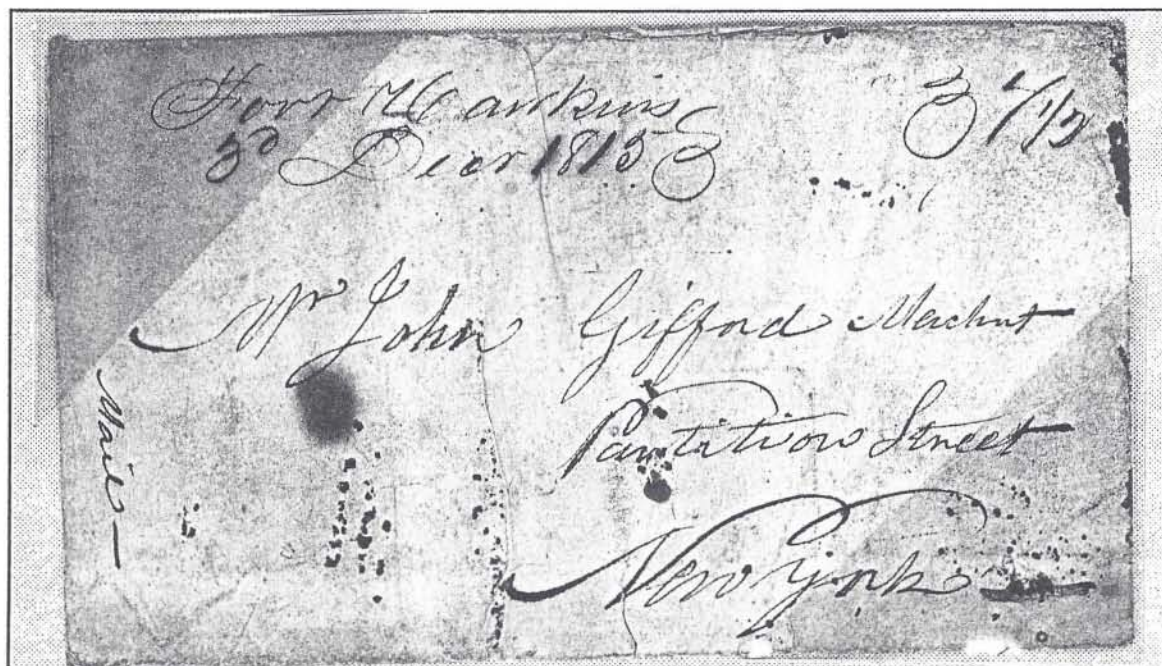 Fort Hawkins
3d Decr 1815
Mr John Gifford Merchnt
Partition Street
New York
Mail